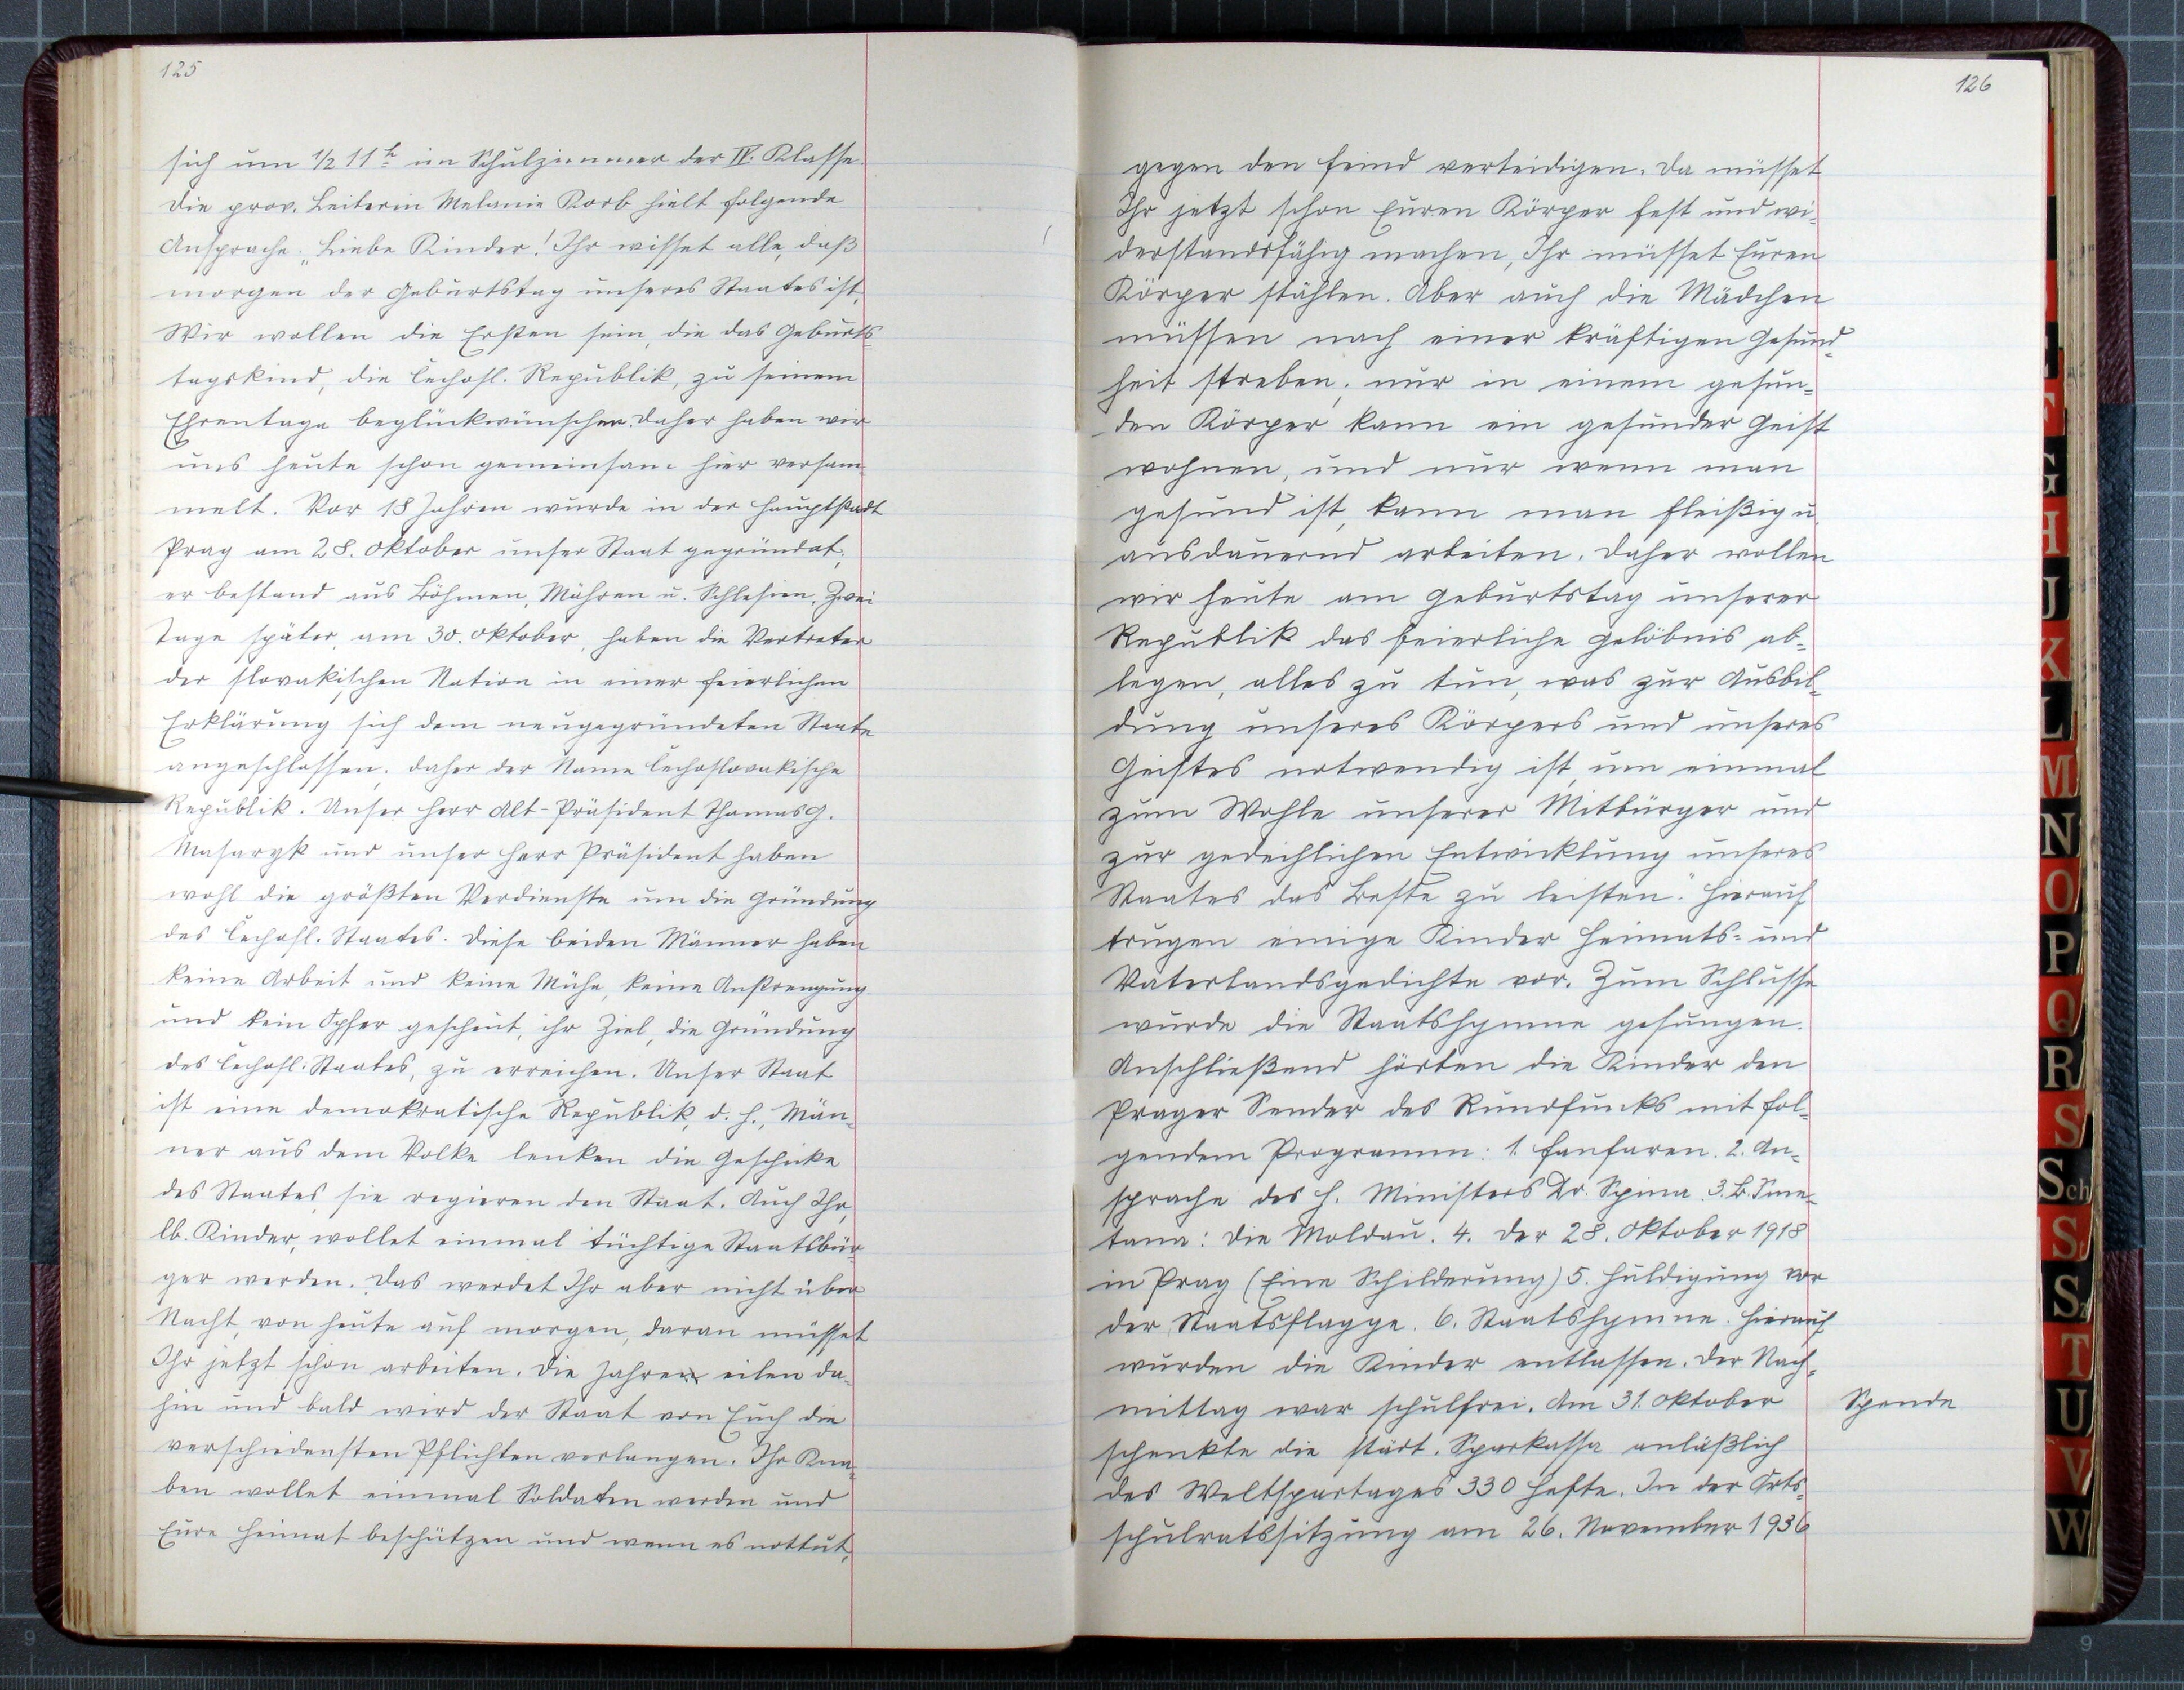 125
sich um 1/2 11h im Schulzimmer der IV. Klasse.
Die prov. Leiterin Melanie Korb hielt folgende
Ansprache: „Liebe Kinder! Ihr wisset alle, daß
morgen der Geburtstag unseres Staates ist.
Wir wollen die Ersten sein, die das Geburts-
tagskind, die čechosl. Republik, zu seinem
Ehrentage beglückwünschen. Daher haben wir
uns heute schon gemeinsam hier versam-
melt. Vor 18 Jahren wurde in der Hauptstadt
Prag am 28. Oktober unser Staat gegründet;
er bestand aus Böhmen, Mähren u. Schlesien. Zwei
Tage später, am 30. Oktober, haben die Vertreter
der slovakischen Nation in einer feierlichen
Erklärung sich dem neugegründeten Staate
angeschlossen, daher der Name čechoslovakische
Republik. Unser Herr Alt-Präsident Thomas G.
Masaryk und unser Herr Präsident haben
wohl die größten Verdienste um die Gründung
des čechosl. Staates. Diese beiden Männer haben
keine Arbeit und keine Mühe, keine Anstrengung
und kein Opfer gescheut, ihr Ziel, die Gründung
des čechosl. Staates, zu erreichen. Unser Staat
ist eine demokratische Republik, d. h., Män-
ner aus dem Volke lenken die Geschicke
des Staates, sie regieren den Staat. Auch Ihr,
lb. Kinder, wollet einmal tüchtige Staatsbür-
ger werden. Das werdet Ihr aber nicht über
Nacht, von heute auf morgen, daran müsset
Ihr jetzt schon arbeiten. Die Jahren eilen da-
hin und bald wird der Staat von Euch die
verschiedensten Pflichten verlangen. Ihr Kna-
ben wollet einmal Soldaten werden und
Eure Heimat beschützen und wenn es nottut,
126
gegen den Feind verteidigen. Da müsset
Ihr jetzt schon Euren Körper fest und wi-
derstandsfähig machen, Ihr müsset Euren
Körper stählen. Aber auch die Mädchen
müssen nach einer kräftigen Gesund-
heit streben; nur in einem gesun-
den Körper kann ein gesunder Geist
wohnen, und nur wenn man
gesund ist, kann man fleißig u.
ausdauernd arbeiten. Daher wollen
wir heute am Geburtstag unserer
Republik das feierliche Gelöbnis ab-
legen, alles zu tun, was zur Ausbil-
dung unseres Körpers und unseres
Geistes notwendig ist, um einmal
zum Wohle unserer Mitbürger und
zur gedeihlichen Entwicklung unseres
Staates das Beste zu leisten." Hierauf
trugen einige Kinder Heimats- und
Vaterlandsgedichte vor. Zum Schlusse
wurde die Staatshymne gesungen.
Anschließend hörten die Kinder den
Prager Sender des Rundfunks mit fol-
gendem Programm: 1. Fanfaren. 2. An-
sprache des H. Ministers Dr. Spina. 3. B. Sme-
tana: Die Moldau. 4. Der 28. Oktober 1918
in Prag (Eine Schilderung) 5. Huldigung vor
der Staatsflagge. 6. Staatshymne. Hierauf
wurden die Kinder entlassen. Der Nach-
mittag war schulfrei. Am 31. Oktober
Spende
schenkte die städt. Sparkassa anläßlich
des Weltspartages 330 Hefte. In der Orts-
schulratssitzung am 26. November 1936
G
H
J
K
L
M
N
O
P
Q
R
S
Sch
S
Sz
T
U
V
W